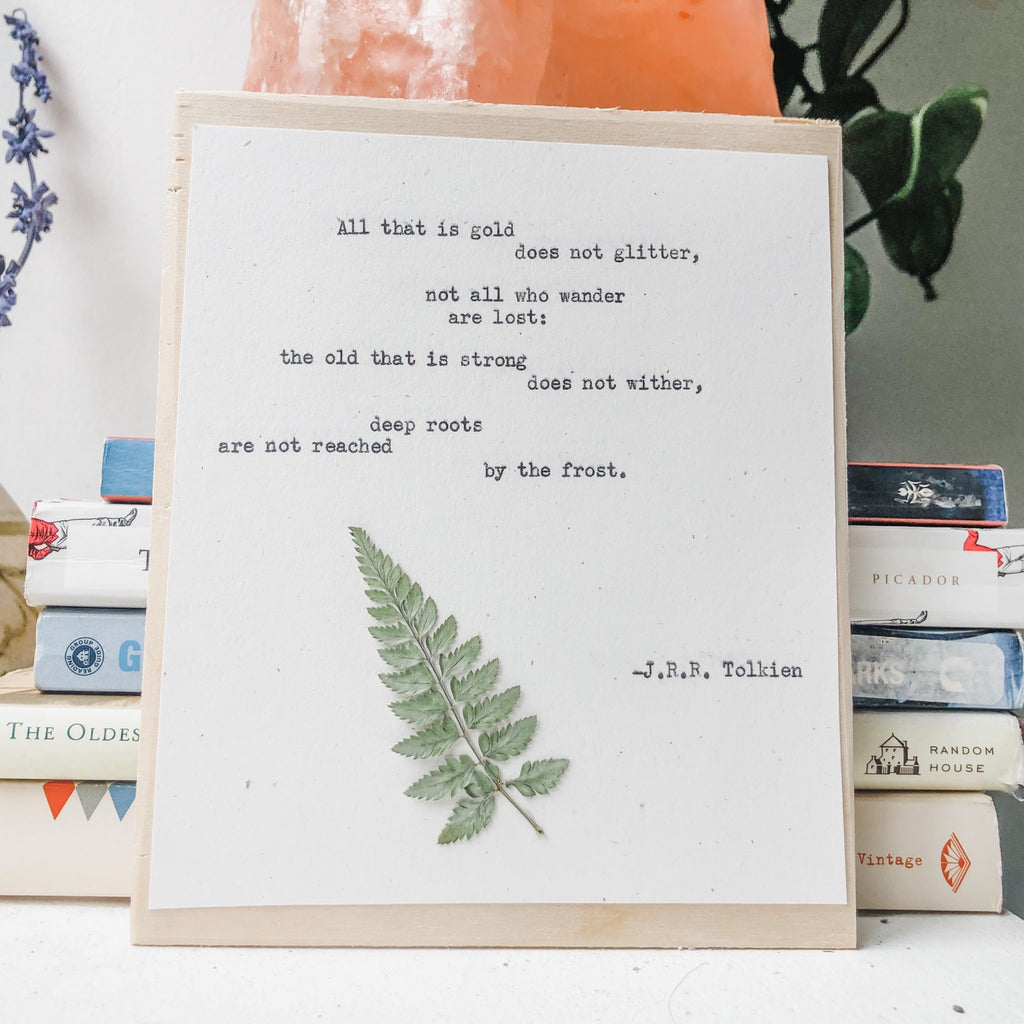 All that is gold
does not glitter,
not all who wander
are lost:
the old that is strong
does not wither,
deep roots
are not reached
by the frost.
—J.R.R. Tolkien
GROUP READING
THE OLDES
PICADOR
RKS
RANDOM
HOUSE
Vintage